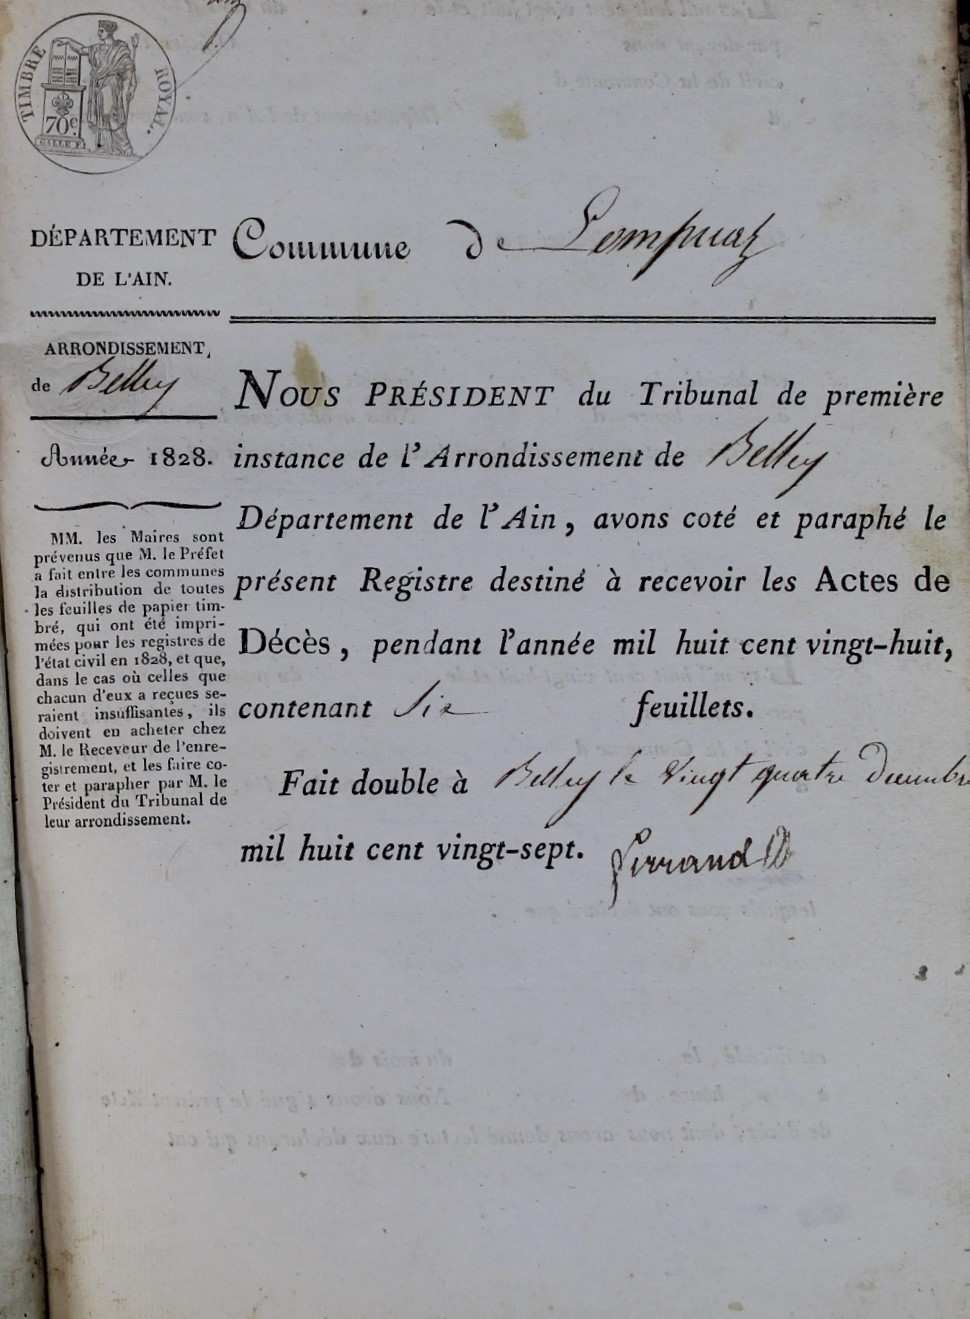 TIMBRE ROYAL.
70c
DÉPARTEMENT
DE L'AIN.
Commune de Lompnaz
ARRONDISSEMENT,
de Belley
Année 1828.
MM. les Maires sont
prévenus que M. le Préfet
a fait entre les communes
la distribution de toutes
les feuilles de papier tim-
bré, qui ont été impri-
mées pour les registres de
l'état civil en 1828, et que,
dans le cas où celles que
chacun d'eux a reçues se-
raient insuffisantes, ils
doivent en acheter chez
M. le Receveur de l'enre-
gistrement, et les faire co-
ter et parapher par M. le
Président du Tribunal de
leur arrondissement.
NOUS PRÉSIDENT du Tribunal de première
instance de l'Arrondissement de Belley
Département de l'Ain, avons coté et paraphé le
présent Registre destiné à recevoir les Actes de
Décès, pendant l'année mil huit cent vingt-huit,
contenant Six feuillets.
Fait double à Belley le Vingt quatre Décembre
mil huit cent vingt-sept.
Ferrand